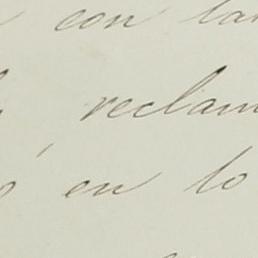 con
reclam
en lo